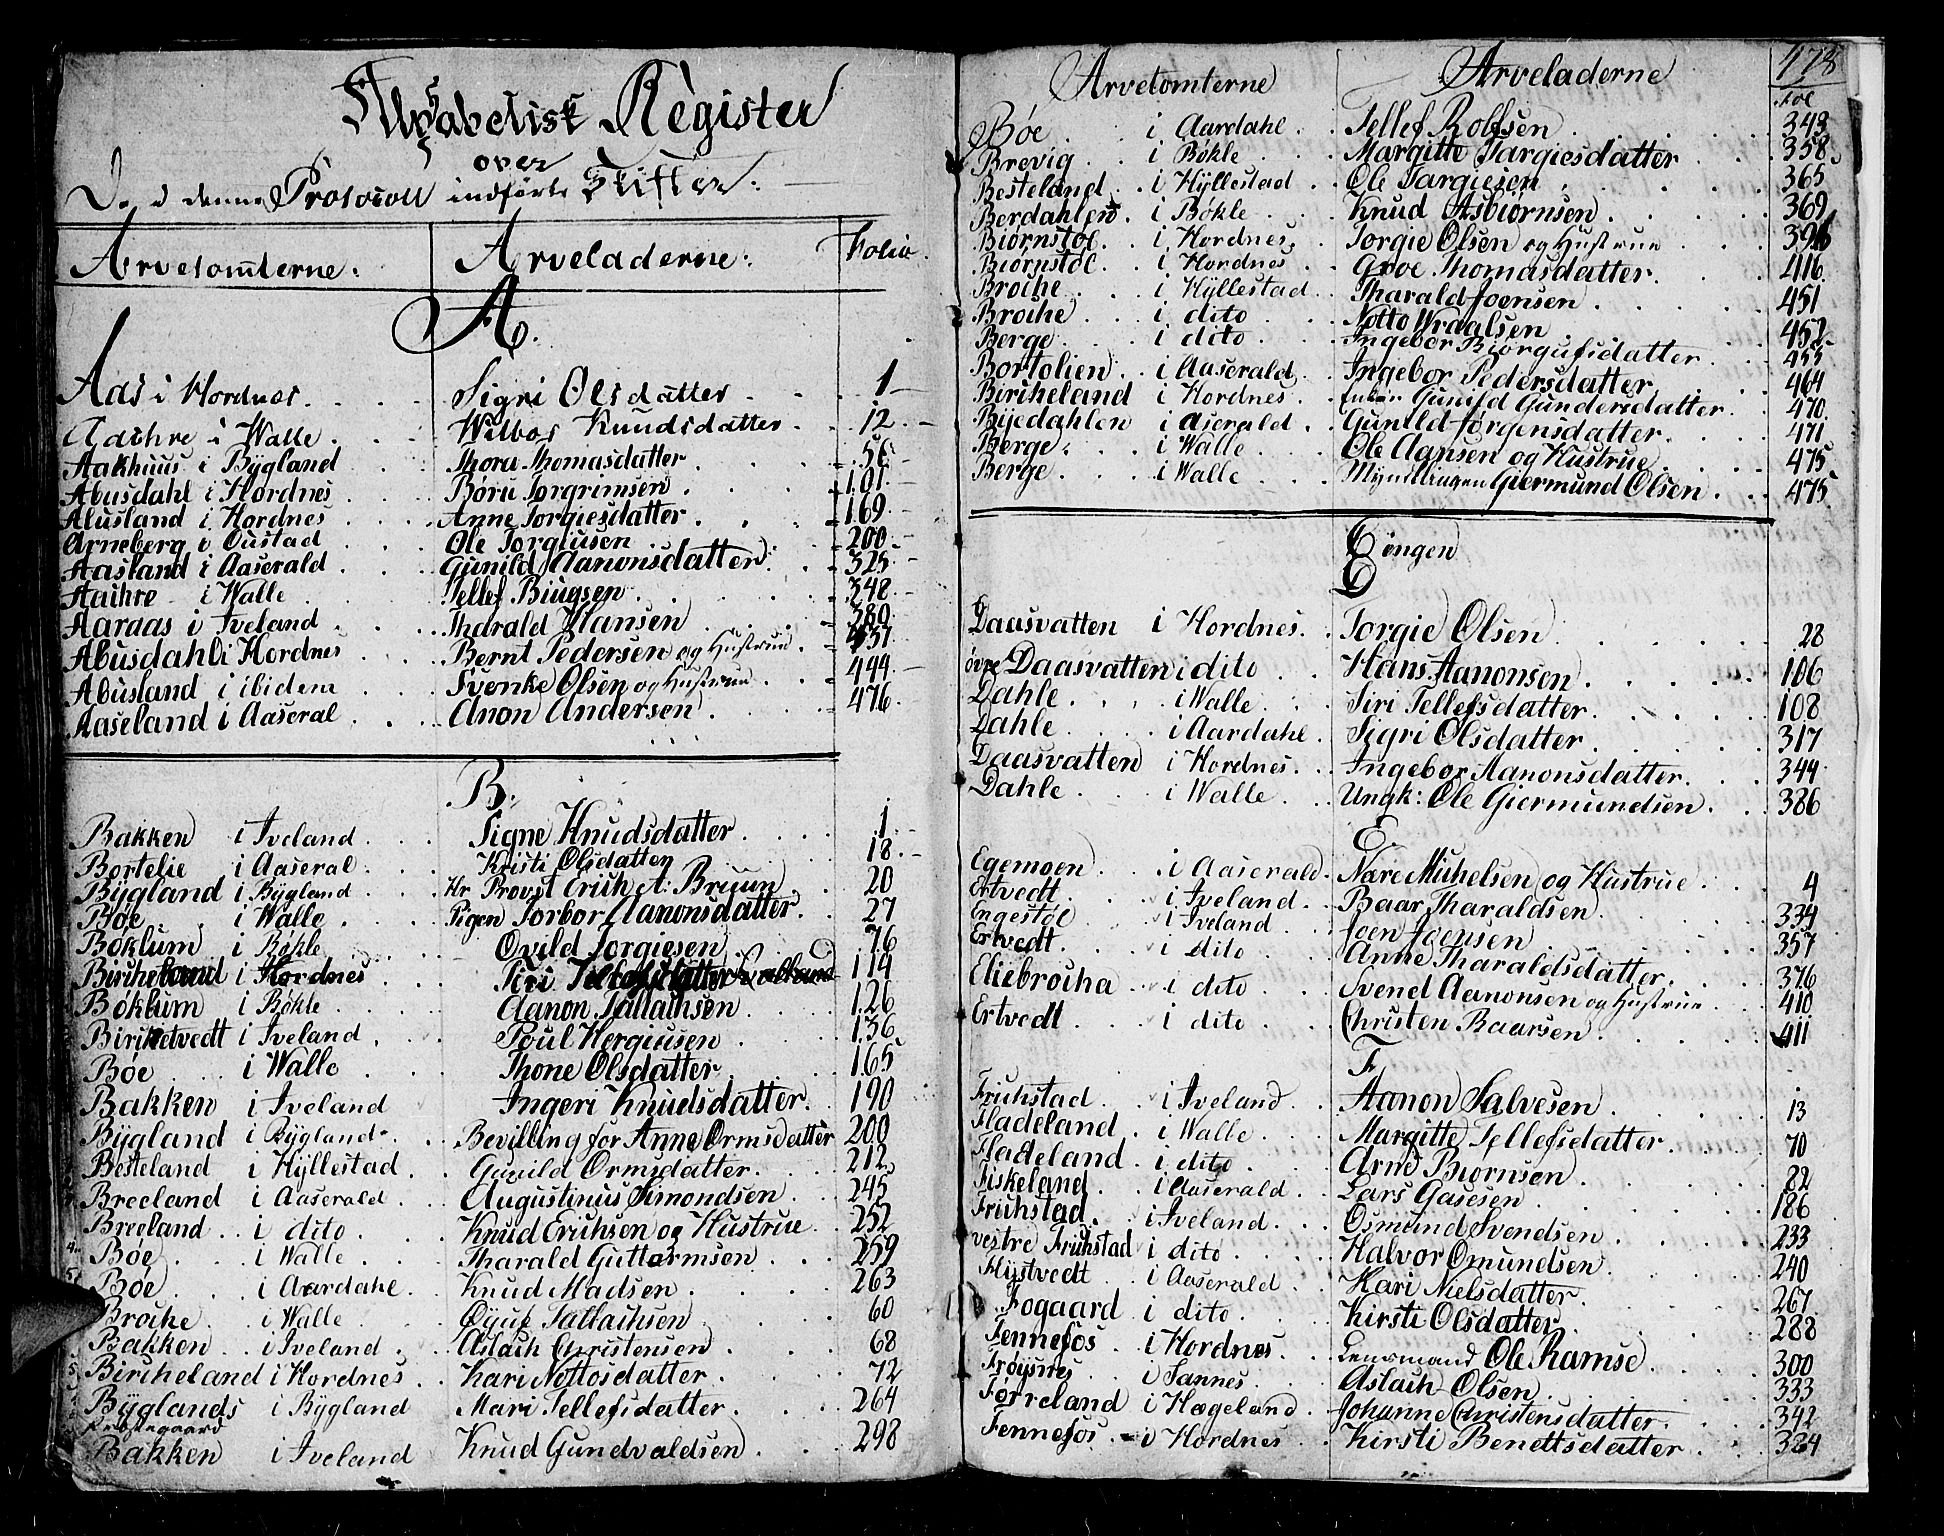 Alphabetisk Register
over
De i denne Protocoll indførte Skifter.
Arvetomterne. Arveladerne. Folio.
A.
Aas i Hordnes Sigri Olsdatter 1
Aachre i Walle Wilbor Knudsdatter 12
Aakhuus i Bÿgland Thoru Thomasdatter 56
Abusdahl i Hordnes Børu Torgrimsen 101
Abusland i Hordnes Anne Torgiesdatter 169
Arneberg i Oustad Ole Torgiusen 200
Aasland i Aaserald Gunild Aanonsdatter 325
Aachre i Walle Tellef Biugsen 348
Aaraas i Iveland Tharald Hansen 380
Abusdahl i Hordnes Bernt Pedersen og Hustrue 437
Abusland i ibidem Svenke Olsen og Hustrue 444
Aaseland i Aaseral Anon Andersen 476
B.
Bakken i Iveland Signe Knudsdatter 1
Bortelie i Aaseral Kristi Olsdatter 18
Bÿgland i Bÿgland Hr Provst Erich A: Bruun 20
Bøe i Walle Pigen Torbor Aanonsdatter 27
Boklum i Bökle Øvild Torgiesen 76
Bircheland i Hordnes Siri 114
Boklum i Bökle Aanon Tallachsen 126
Birketvedt i Iveland Poul Hergiusen 136
Bøe i Walle Thone Olsdatter 165
Bakken i Iveland Ingeri Knudsdatter 190
Bÿgland i Bÿgland Bevilling for Anne Ormsdatter 200
Besteland i Hÿllestad Gunild Ormsdatter 212
Breeland i Aaserald Augustinus Simondsen 245
Breeland i dito Knud Erichsen og Hustrue 252
Bøe i Walle Tharald Guttormsen 259
Bøe i Aardahl Knud Madsen 263
Broche i Walle Øÿuf Tallachsen 60
Bakken i Iveland Aslach Christensen 68
Bircheland i Hordnes Kari Nottosdatter 72
Bÿglands i Bÿgland Mari Tellefsdatter 264
Præstegaard
Bakken i Iveland Knud Gundvaldsen 298
478
Arvetomterne Arveladerne Fol
Bøe i Aardahl Tellef Rolfsen 343
Brevig i Bökle Margitte Targiesdatter 358
Besteland i Hÿllestad Ole Targiesen 365
Berdahlen i Bökle Knud Asbiornsen 369
Biørnstøl i Hordnes Torgie Olsen og Hustrue
Biørnstøl i Hordnes Groe Thomasdatter 416
Broche i Hÿllestad Tharald Joensen 451
Broche i dito Notto Wraalsen 452
Berge i dito Ingebor Biorgufsdatter 455
Bortolien i Aaserald Ingebor Pedersdatter 464
Bircheland i Hordnes Enken Gunild Gundersdatter 470
Bÿedahlen i Aaserald Gunild Jørgensdatter 471
Berge i Walle Ole Aansen og Hustrue 475
Berge i Walle Myndlingen Giermund Olsen 475
C ingen
D
Daasvatten i Hordnes Torgie Olsen 28
øvre Daasvatten i dito Hans Aanonsen 106
Dahle i Walle Siri Tellefsdatter 108
Dahle i Aardahl Sigri Olsdatter 317
Daasvatten i Hordnes Ingebor Aanonsdatter 344
Dahle i Walle Ungk: Ole Giermundsen 386
E
Egemoen i Aaserald Nare Michelsen og Hustrue 4
Ertvedt i Iveland Baar Tharaldsen 334
Engestøl i Iveland Joen Joensen 357
Ertvedt i dito Anne Tharaldsdatter 376
Eliebrocha i dito Svenel Aanonsen og Hustrue 410
Ertvedt i dito Christen Baarsen 411
F
Fruhstad i Iveland Aanon Salvesen 13
Fladeland i Walle Margitte Tellefsdatter 70
Fladeland i dito Arne Biornsen 82
Fiskeland i Aaserald Lars Gasesen 186
Fruhstad i Iveland Osmund Svendsen 233
vestre Fruhstad i dito Halvor Omundsen 240
Flÿstvedt i Aaserald Kari Nielsdatter 267
Fogaard i dito Kirsti Olsdatter 288
Fennefos i Hordnes Lensmand Ole Ramse 300
Frøÿsnes i Sannes Aslach Olsen 333
Førreland i Hægeland Johanne Christensdatter 342
Fennefos i Hordnes Kirsti Benettsdatter 384